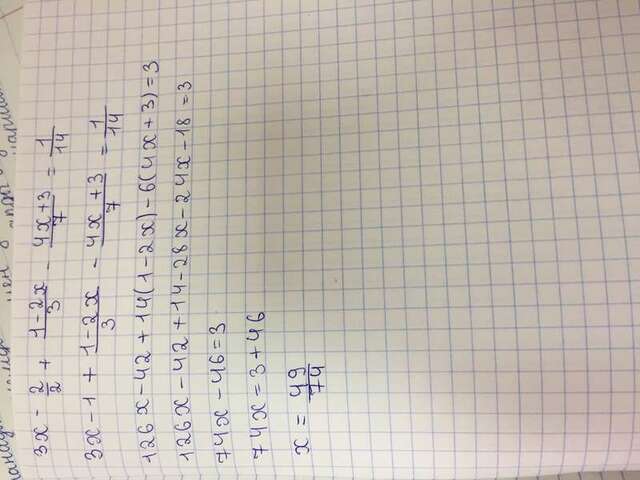 мен
3x - 2/2 + 1-2x/3 - 4x+3/7 = 1/14
3x-1 + 1-2x/3 - 4x+3/7 = 1/14
126x-42+14(1-2x)-6(4x+3)=3
126x-42+14-28x-24x-18=3
74x-46=3
74x=3+46
x = 49/74